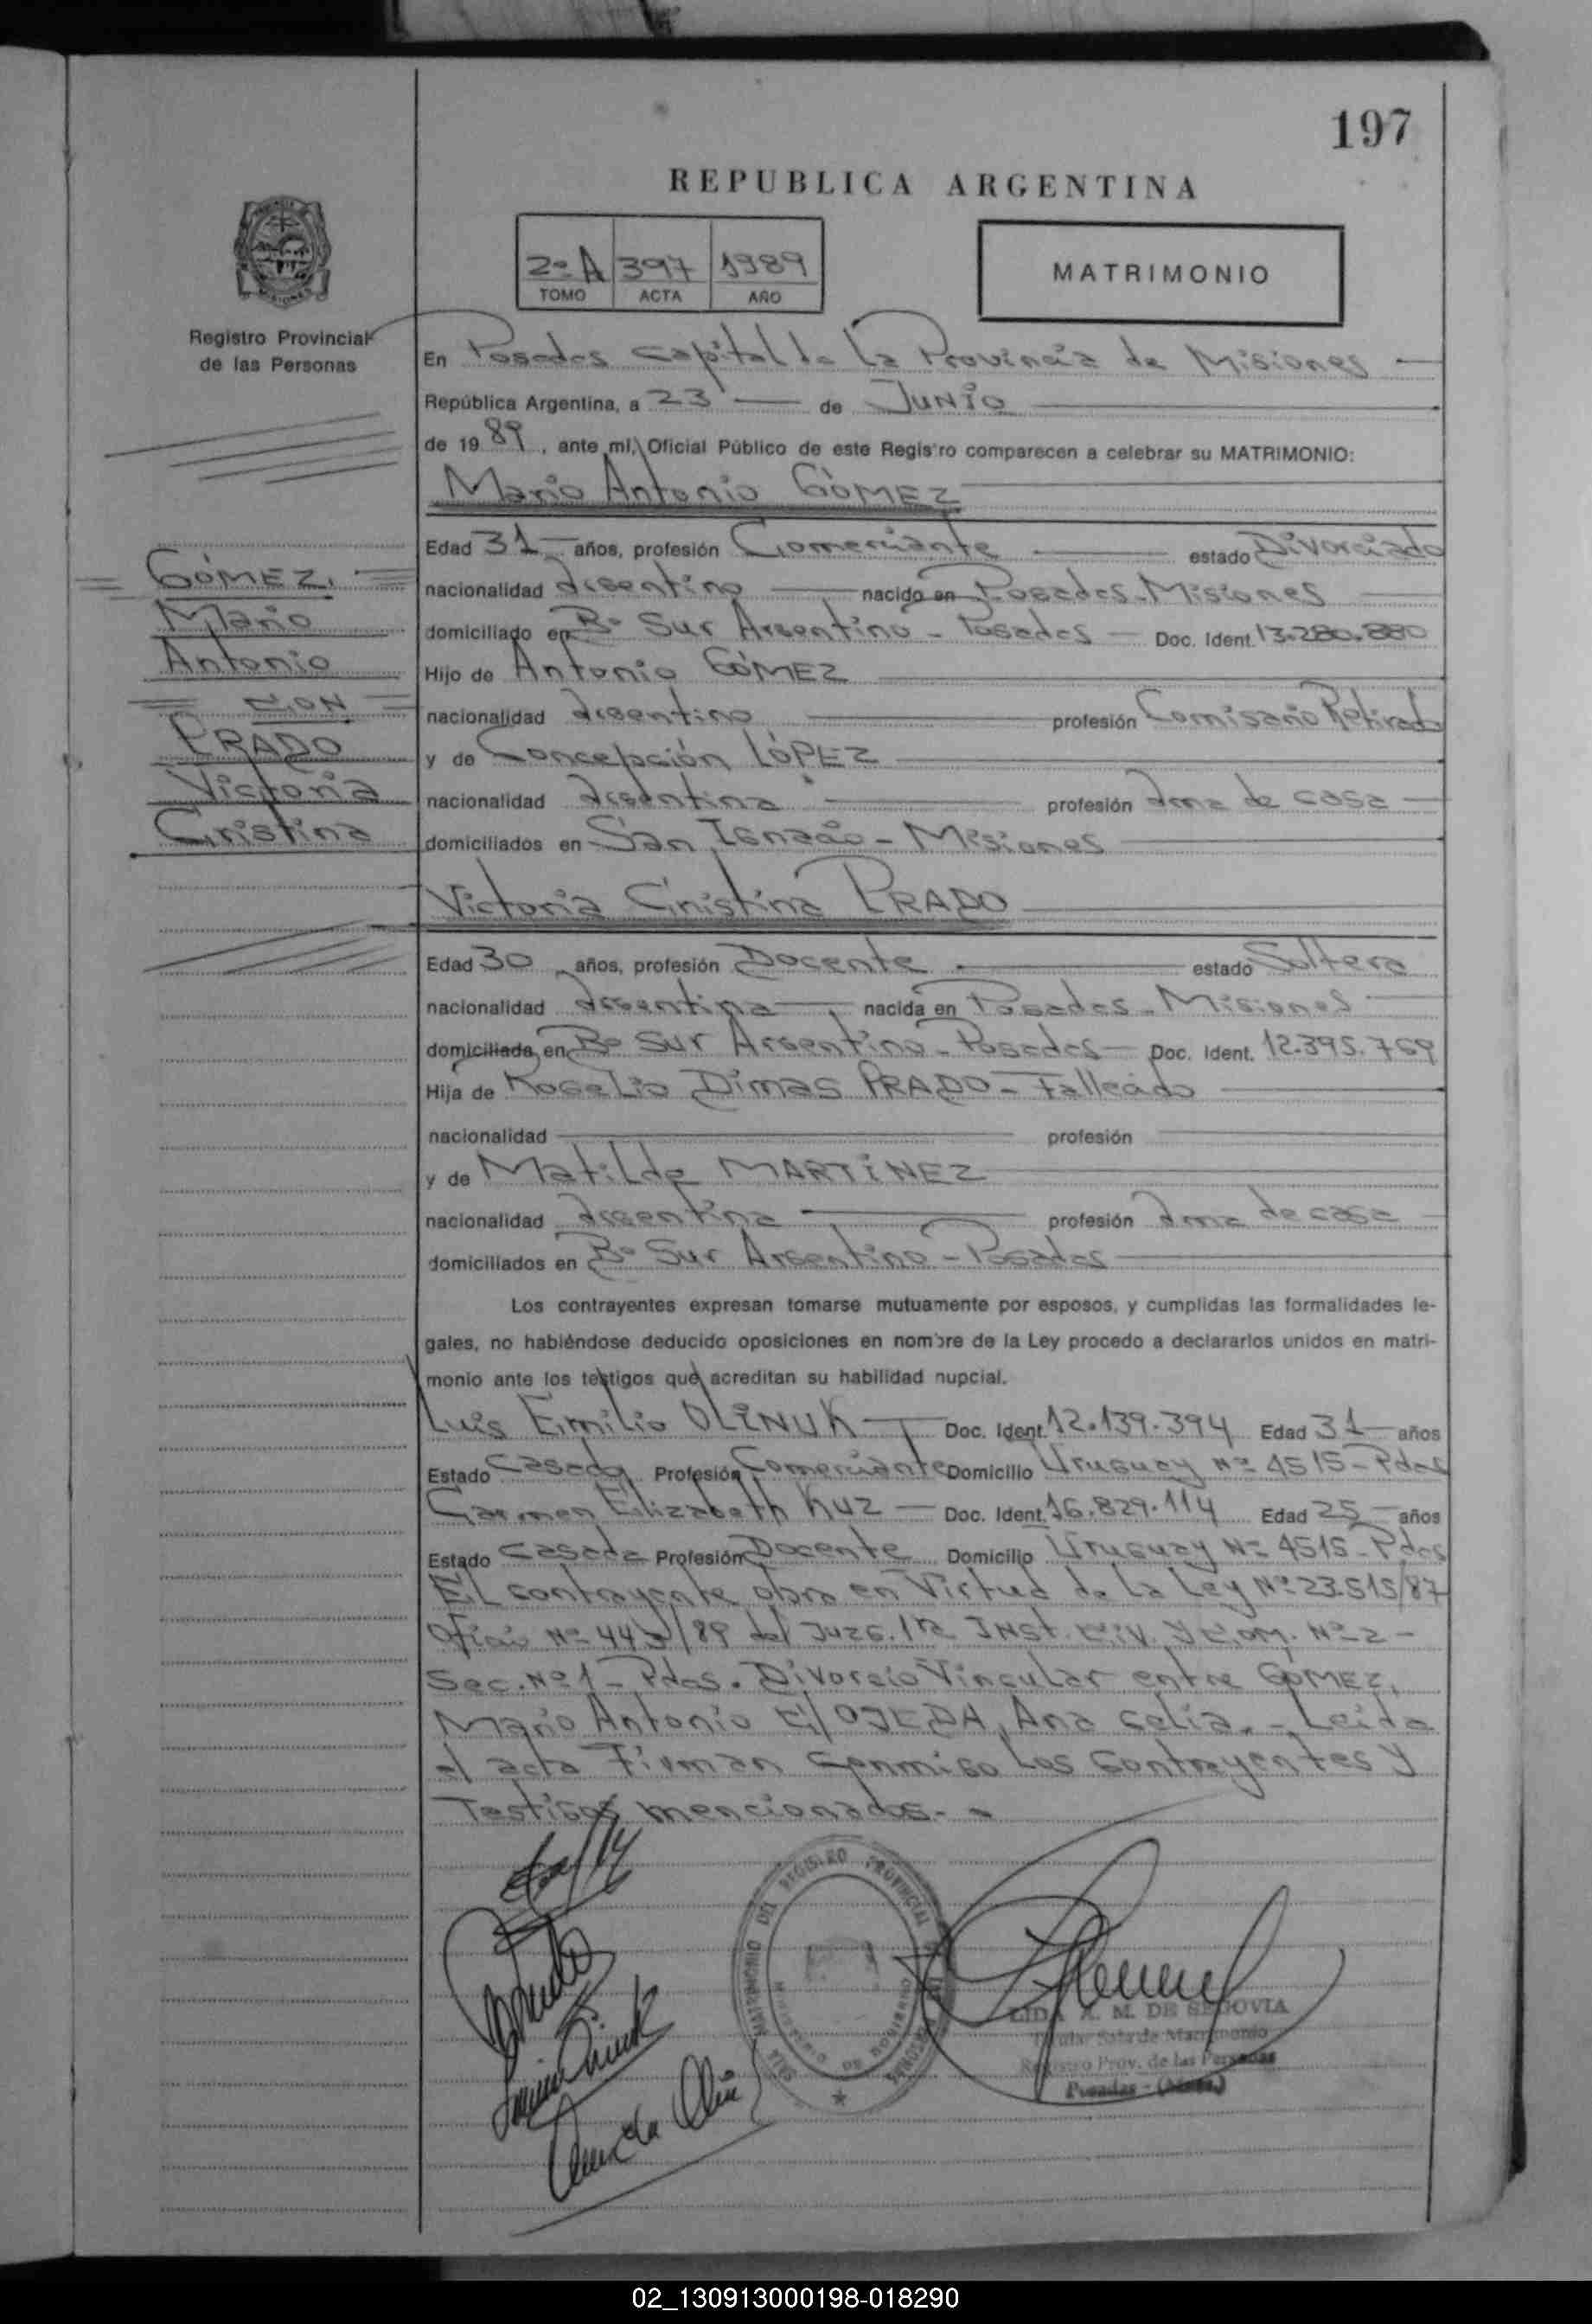 197
REPUBLICA ARGENTINA
2º A 397 1989
TOMO ACTA AÑO
MATRIMONIO
Registro Provincial
de las Personas
En Posadas Capital de la Provincia de Misiones
República Argentina, a 23 de JUNIO
de 1989, ante mí, Oficial Público de este Registro comparecen a celebrar su MATRIMONIO:
Mario Antonio GÓMEZ
Edad 31 años, profesión Comerciante estado Divorciado
nacionalidad Argentino nacido en Posadas-Misiones
domiciliado en Bº Sur Argentino - Posadas - Doc. Ident. 13.280.880
Hijo de Antonio GÓMEZ
nacionalidad Argentino profesión Comisario Retirado
y de Concepción LÓPEZ
nacionalidad Argentina profesión Ama de casa
domiciliados en San Ignacio - Misiones
GÓMEZ,
Mario
Antonio
CON
PRADO
Victoria
Cristina
Victoria Cristina PRADO
Edad 30 años, profesión Docente estado Soltera
nacionalidad Argentina nacida en Posadas - Misiones
domiciliada en Bº Sur Argentino - Posadas - Doc. Ident. 12.395.769
Hija de Rogelio Dimas PRADO - Fallecido
nacionalidad profesión
y de Matilde MARTÍNEZ
nacionalidad Argentina profesión Ama de casa
domiciliados en Bº Sur Argentino - Posadas
Los contrayentes expresan tomarse mutuamente por esposos, y cumplidas las formalidades le-
gales, no habiéndose deducido oposiciones en nombre de la Ley procedo a declararlos unidos en matri-
monio ante los testigos que acreditan su habilidad nupcial.
Luis Emilio OLINUK Doc. Ident. 12.139.394 Edad 31 años
Estado Casado Profesión Comerciante Domicilio Uruguay Nº 4515 - Pdas
Carmen Elizabeth KUZ - Doc. Ident. 16.829.114 Edad 25 años
Estado Casada Profesión Docente Domicilio Uruguay Nº 4515 - Pdas
El contrayente obra en Virtud de la Ley Nº 23.515/87
Oficio Nº /89 del Juzg. 1ra INST. CIV. Y COM. Nº 2 -
Sec. Nº 1 - Pdas. Divorcio Vincular entre GÓMEZ,
Mario Antonio C/ OJEDA, Ana Celia. - Leída
el acta Firman conmigo los contrayentes y
Testigos mencionados. -
SALA MATRIMONIO DEL REGISTRO PROVINCIAL DE LAS PERSONAS
LIDA A. M. DE SEGOVIA
Titular Sala de Matrimonio
Registro Prov. de las Personas
Posadas - (Mnes.)
02_130913000198-018290